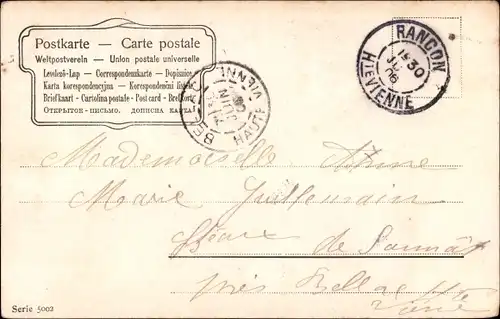 Postkarte — Carte postale
Weltpostverein — Union postale universelle
Levelező-Lap — Correspondenzkarte — Dopisnice
Karta korespondencyjna — Korespondenční lístek
Briefkaart - Cartolina postale - Post card - Brefkort
ОТКРЫТОК-ПИСЬМО. ДОПИСНА КАРТА
RANCON
30
JUIN
06
HTE VIENNE
HAUTE
Mademoiselle Anne
Marie Guillemain
de Sannat
près Bellac Hte
Vienne
Serie 5002